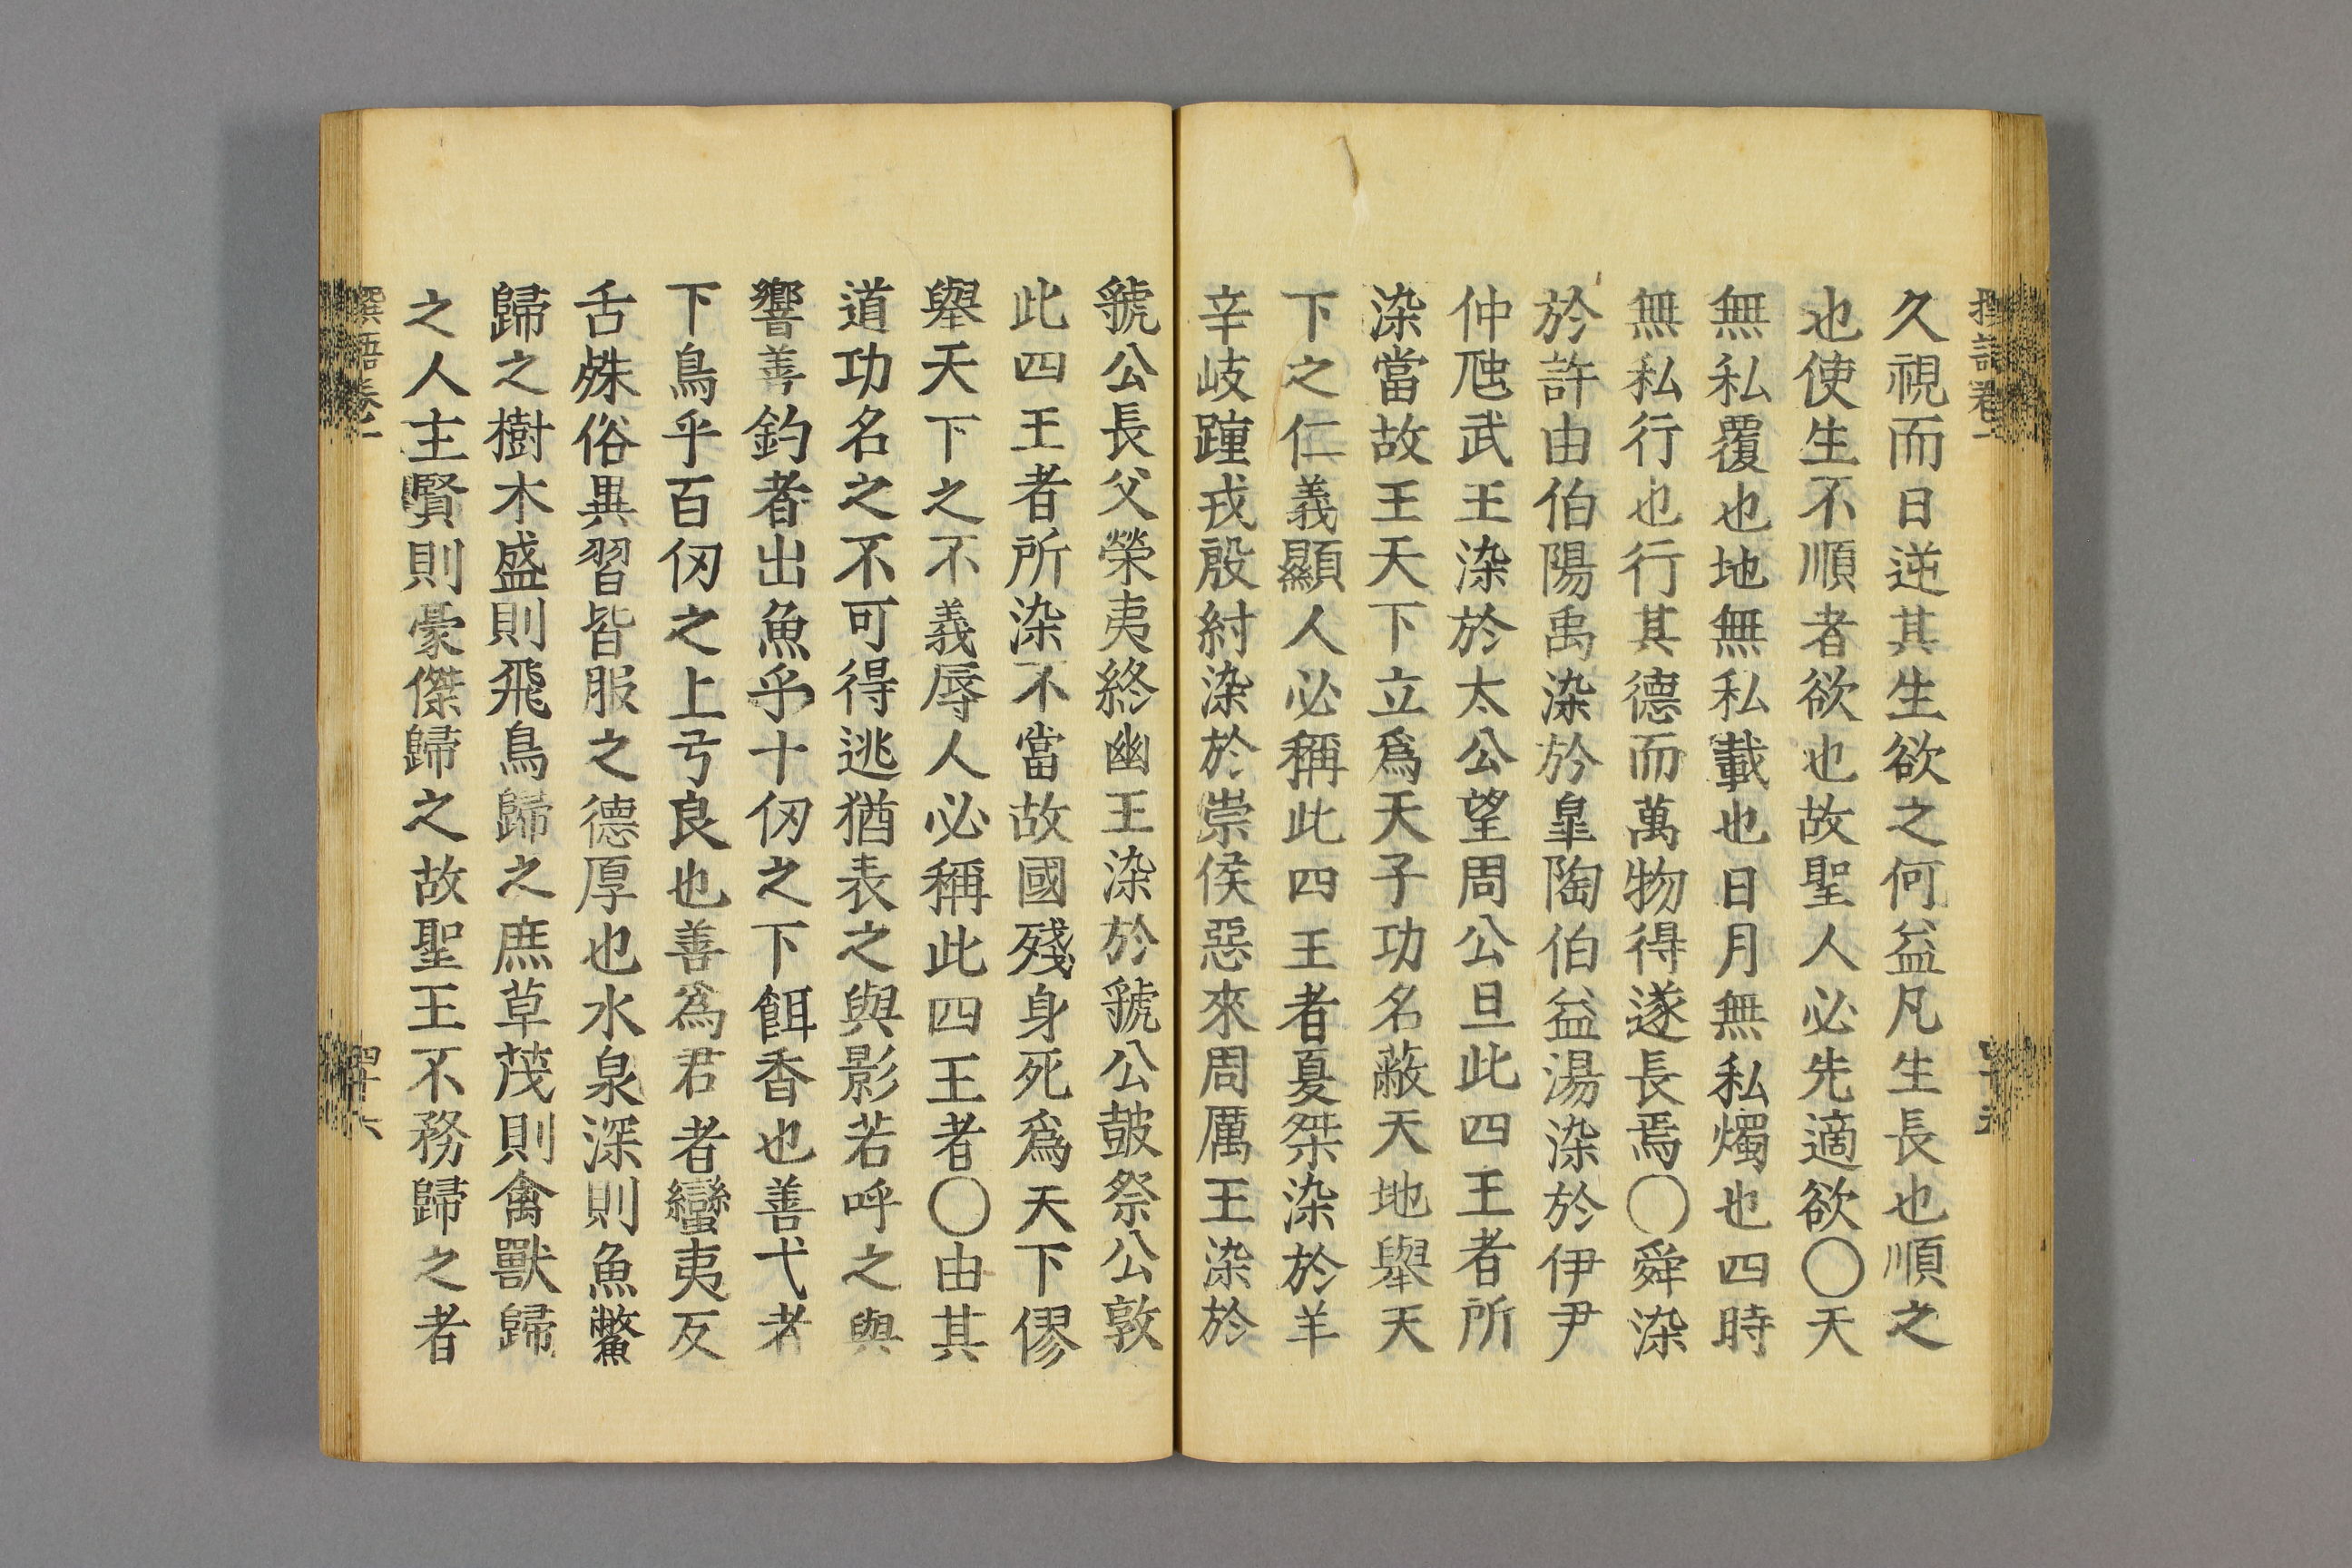 久視而日逆其生欲之何益凡生長也順之
也使生不順者欲也故聖人必先適欲○天
無私覆也地無私載也日月無私燭也四時
無私行也行其德而萬物得遂長焉○舜染
於許由伯陽禹染於皐陶伯益湯染於伊尹
仲虺武王染於太公望周公旦此四王者所
染當故王天下立爲天子功名蔽天地舉天
下之仁義顯人必稱此四王者夏桀染於羊
辛岐踵戎殷紂染於崇侯惡來周厲王染於
虢公長父榮夷終幽王染於虢公鼓祭公敦
此四王者所染不當故國殘身死爲天下僇
舉天下之不義辱人必稱此四王者○由其
道功名之不可得逃猶表之與影若呼之與
響善釣者出魚乎十仞之下餌香也善弋者
下鳥乎百仞之上弓良也善爲君者蠻夷反
舌殊俗異習皆服之德厚也水泉深則魚鱉
歸之樹木盛則飛鳥歸之庶草茂則禽獸歸
之人主賢則豪傑歸之故聖王不務歸之者